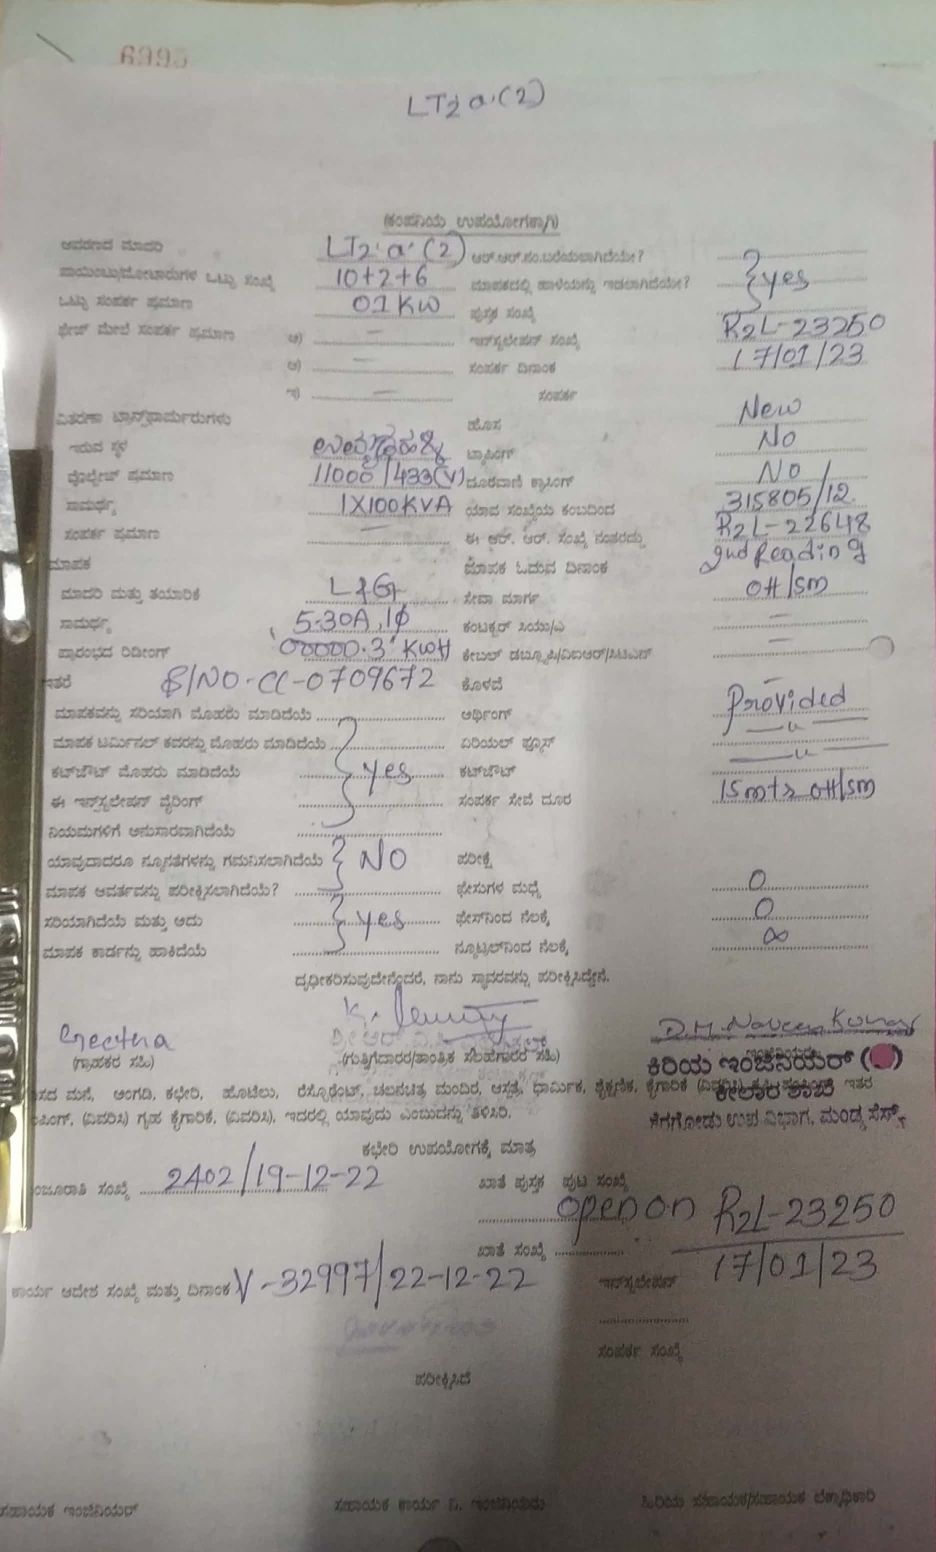 6995
LT2 a·(2)
(ಕಂಪನಿಯ ಉಪಯೋಗಕ್ಕಾಗಿ)
ಆವರಣದ ಮಾದರಿ LT2·a·(2) ಆರ್.ಆರ್.ನಂ.ಬರೆಯಲಾಗಿದೆಯೇ?
ಪಾಯಿಂಟು/ಮೋಟಾರುಗಳ ಒಟ್ಟು ಸಂಖ್ಯೆ 10+2+6 ಮಾಪಕದಲ್ಲಿ ಹಾಳೆಯನ್ನು ಇಡಲಾಗಿದೆಯೇ? } yes
ಒಟ್ಟು ಸಂಪರ್ಕ ಪ್ರಮಾಣ 01 KW ಪುಸ್ತಕ ಸಂಖ್ಯೆ
ಫೇಜ್ ಮೇಲೆ ಸಂಪರ್ಕ ಪ್ರಮಾಣ ಅ) — ಇನ್‌ಸ್ಟಲೇಷನ್ ಸಂಖ್ಯೆ R2L-23250
ಆ) — ಸಂಪರ್ಕ ದಿನಾಂಕ 17/01/23
ಇ) — ಸಂಪರ್ಕ
ವಿತರಣಾ ಟ್ರಾನ್ಸ್‌ಫಾರ್ಮರುಗಳು ಹೊಸ New
ಇರುವ ಸ್ಥಳ ಟ್ಯಾಪಿಂಗ್ No
ವೋಲ್ಟೇಜ್ ಪ್ರಮಾಣ 11000/433(V) ದೂರವಾಣಿ ಕ್ರಾಸಿಂಗ್ No
ಸಾಮರ್ಥ್ಯ 1X100KVA ಯಾವ ಸಂಖ್ಯೆಯ ಕಂಬದಿಂದ 315805/12.
ಸಂಪರ್ಕ ಪ್ರಮಾಣ — ಈ ಆರ್. ಆರ್. ಸಂಖ್ಯೆ ನಂತರದ್ದು R2L-22648
ಮಾಪಕ ಮಾಪಕ ಓದುವ ದಿನಾಂಕ 2nd Reading
ಮಾದರಿ ಮತ್ತು ತಯಾರಿಕೆ L&G ಸೇವಾ ಮಾರ್ಗ OH/SM
ಸಾಮರ್ಥ್ಯ 5-30A, 1ϕ ಕಂಡಕ್ಟರ್ ಸಿಯು/ಎ —
ಪ್ರಾರಂಭದ ರಿಡೀಂಗ್ 00000.3 KWH ಕೇಬಲ್ —
ಇತರೆ S/NO-CC-0709672 ಕೊಳವೆ —
ಮಾಪಕವನ್ನು ಸರಿಯಾಗಿ ಮೊಹರು ಮಾಡಿದೆಯೆ ಅರ್ಥಿಂಗ್ Provided
ಮಾಪಕ ಟರ್ಮಿನಲ್ ಕವರನ್ನು ಮೊಹರು ಮಾಡಿದೆಯೆ ಏರಿಯಲ್ ಫ್ಯೂಸ್ —"—
ಕಟ್‌ಔಟ್ ಮೊಹರು ಮಾಡಿದೆಯೆ } yes ಕಟ್‌ಔಟ್ —"—
ಈ ಇನ್‌ಸ್ಟಲೇಷನ್ ವೈರಿಂಗ್ ಸಂಪರ್ಕ ಸೇವೆ ದೂರ 15mtr OH/SM
ನಿಯಮಗಳಿಗೆ ಅನುಸಾರವಾಗಿದೆಯೆ
ಯಾವುದಾದರೂ ನ್ಯೂನತೆಗಳನ್ನು ಗಮನಿಸಲಾಗಿದೆಯೆ } NO ಪರೀಕ್ಷೆ
ಮಾಪಕ ಆವರ್ತವನ್ನು ಪರೀಕ್ಷಿಸಲಾಗಿದೆಯೆ? ಫೇಸುಗಳ ಮಧ್ಯೆ 0
ಸರಿಯಾಗಿದೆಯೆ ಮತ್ತು ಅದು } yes ಫೇಸ್‌ನಿಂದ ನೆಲಕ್ಕೆ 0
ಮಾಪಕ ಕಾರ್ಡನ್ನು ಹಾಕಿದೆಯೆ ನ್ಯೂಟ್ರಲ್‌ನಿಂದ ನೆಲಕ್ಕೆ ∞
ದೃಢೀಕರಿಸುವುದೇನೆಂದರೆ, ನಾನು ಸ್ಥಾವರವನ್ನು ಪರೀಕ್ಷಿಸಿದ್ದೇನೆ.
Geetha D.M. Naveen Kumar
(ಗ್ರಾಹಕರ ಸಹಿ) (ಗುತ್ತಿಗೆದಾರರ/ತಾಂತ್ರಿಕ ಸಲಹೆಗಾರರ ಸಹಿ) ಕಿರಿಯ ಇಂಜಿನಿಯರ್
ಕೀಲಾರ ಶಾಖೆ
ಉಪ ವಿಭಾಗ, ಮಂಡ್ಯ ಸೆಸ್ಕ್
ಮನೆ, ಅಂಗಡಿ, ಕಛೇರಿ, ಹೊಟೆಲು, ರೆಸ್ಟೊರೆಂಟ್, ಚಲನಚಿತ್ರ ಮಂದಿರ, ಆಸ್ಪತ್ರೆ, ಧಾರ್ಮಿಕ, ಶೈಕ್ಷಣಿಕ, ಕೈಗಾರಿಕೆ (ವಿವರಿಸಿ) ಇತರ
(ವಿವರಿಸಿ) ಗೃಹ ಕೈಗಾರಿಕೆ, (ವಿವರಿಸಿ), ಇದರಲ್ಲಿ ಯಾವುದು ಎಂಬುದನ್ನು ತಿಳಿಸಿರಿ.
ಕಛೇರಿ ಉಪಯೋಗಕ್ಕೆ ಮಾತ್ರ
ಸಂಖ್ಯೆ 2402/19-12-22 ಖಾತೆ ಪುಸ್ತಕ ಪುಟ ಸಂಖ್ಯೆ
open on R2L-23250
ಖಾತೆ ಸಂಖ್ಯೆ 17/01/23
ಕಾರ್ಯ ಆದೇಶ ಸಂಖ್ಯೆ ಮತ್ತು ದಿನಾಂಕ V-32997/22-12-22 ಇನ್‌ಸ್ಟಲೇಷನ್
ಸಂಪರ್ಕ ಸಂಖ್ಯೆ
ಪರೀಕ್ಷಿಸಿದೆ
ಸಹಾಯಕ ಇಂಜಿನಿಯರ್ ಸಹಾಯಕ ಕಾರ್ಯ ನಿ. ಇಂಜಿನಿಯರು ಹಿರಿಯ ಸಹಾಯಕ/ಸಹಾಯಕ ಲೆಕ್ಕಾಧಿಕಾರಿ